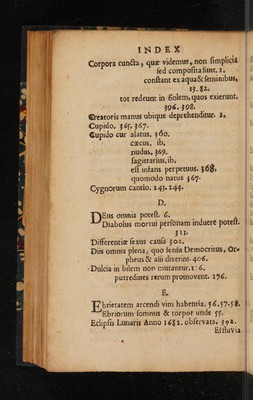 INDEX
Corpora cuncta, quæ videmus, non simplicia
sed composita sunt. 2.
constant ex aqua & seminibus,
83. 82.
tot redeunt in Solem, quos exierunt.
396. 398.
Creatoris manus ubique deprehenditur. 2.
Cupido. 365. 367.
Cupido cur alatus. 360.
cæcus. ib.
nudus. 369.
sagittarius, ib.
est infans perpetuus. 368.
quomodo natus 367.
Cygnorum cantio. 243. 244.
D.
DEus omnia potest. 6.
Diabolus mortui personam induere potest.
311.
Differentiæ sexus causa 301.
Diis omnia plena, quo sensu Democritus, Or-
pheus & alii dixerint. 406.
Dulcia in bilem non mutantur.
putredines rerum promovent. 176.
E.
EBrietatem arcendi vim habentia. 56. 57. 58.
Ebriorum somnus & torpor unde 55.
Eclipsis Lunaris Anno 1682. observata. 392.
Effluvia